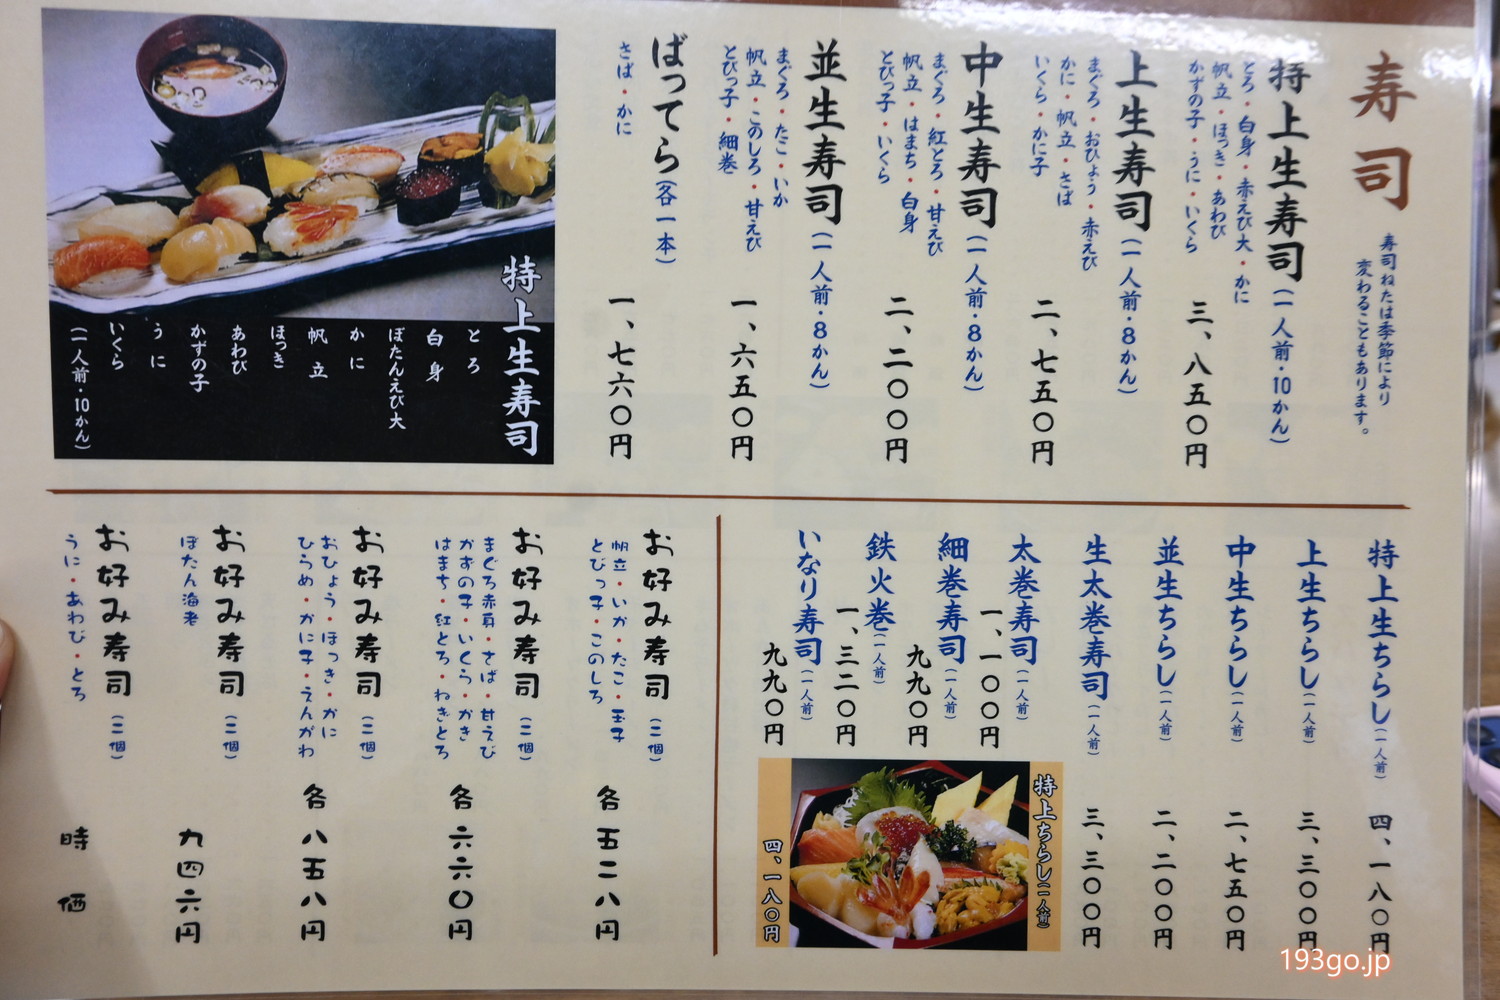 寿司
寿司ねたは季節により
変わることもあります。
特上生寿司(一人前・10かん)
とろ・白身・赤えび大・かに
帆立・ほっき・あわび
かずの子・うに・いくら
三、八五〇円
上生寿司(一人前・8かん)
まぐろ・おひょう・赤えび
かに・帆立・さば
いくら・かに子
二、七五〇円
中生寿司(一人前・8かん)
まぐろ・紅とろ・甘えび
帆立・はまち・白身
とびっ子・いくら
二、二〇〇円
並生寿司(一人前・8かん)
まぐろ・たこ・いか
帆立・このしろ・甘えび
とびっ子・細巻
一、六五〇円
ばってら(各一本)
さば・かに
一、七六〇円
特上生寿司
とろ
白身
ぼたんえび大
かに
帆立
ほっき
あわび
かずの子
うに
いくら
(一人前・10かん)
特上生ちらし(一人前)
四、一八〇円
上生ちらし(一人前)
三、三〇〇円
中生ちらし(一人前)
二、七五〇円
並生ちらし(一人前)
二、二〇〇円
生太巻寿司(一人前)
三、三〇〇円
太巻寿司(一人前)
一、一〇〇円
細巻寿司(一人前)
九九〇円
鉄火巻(一人前)
一、三二〇円
いなり寿司(一人前)
九九〇円
特上ちらし(一人前)
四、一八〇円
お好み寿司(二個)
帆立・いか・たこ・玉子
とびっ子・このしろ
各五二八円
お好み寿司(二個)
まぐろ赤身・さば・甘えび
かずの子・いくら・かき
はまち・紅とろ・ねぎとろ
各六六〇円
お好み寿司(二個)
おひょう・ほっき・かに
ひらめ・かに子・えんがわ
各八五八円
お好み寿司(二個)
ぼたん海老
九四六円
お好み寿司(二個)
うに・あわび・とろ
時価
193go.jp